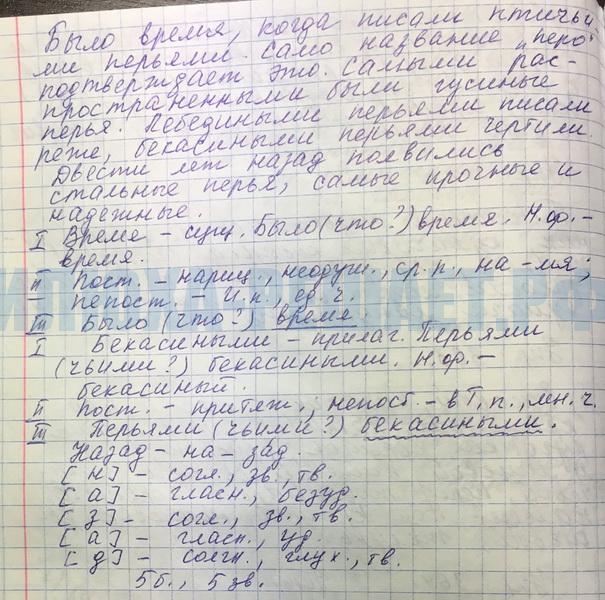 Было время, когда писали птичьи
ми перьями. Само название "перо"
подтверждает это. Самыми рас-
пространенными были гусиные
перья. Лебедиными перьями писали
реже, бекасиными перьями чертили.
Двести лет назад появились
стальные перья, самые прочные и
надежные.
I Время - сущ. Было (что?) время. Н.ф. -
время.
II Пост. - нариц., неодуш., ср.р., на -мя;
- непост. - И.п., ед.ч.
III Было (что?) время.
I Бекасиными - прилаг. Перьями
(чьими?) бекасиными. Н.ф. -
бекасиный.
II Пост. - притяж., непост. - в Т.п., мн.ч.
III Перьями (чьими?) бекасиными.
Назад - на - зад.
[н] - согл., зв., тв.
[а] - гласн., безуд.
[з] - согл., зв., тв.
[а] - гласн., уд.
[д] - согл., глух., тв.
5 б., 5 зв.